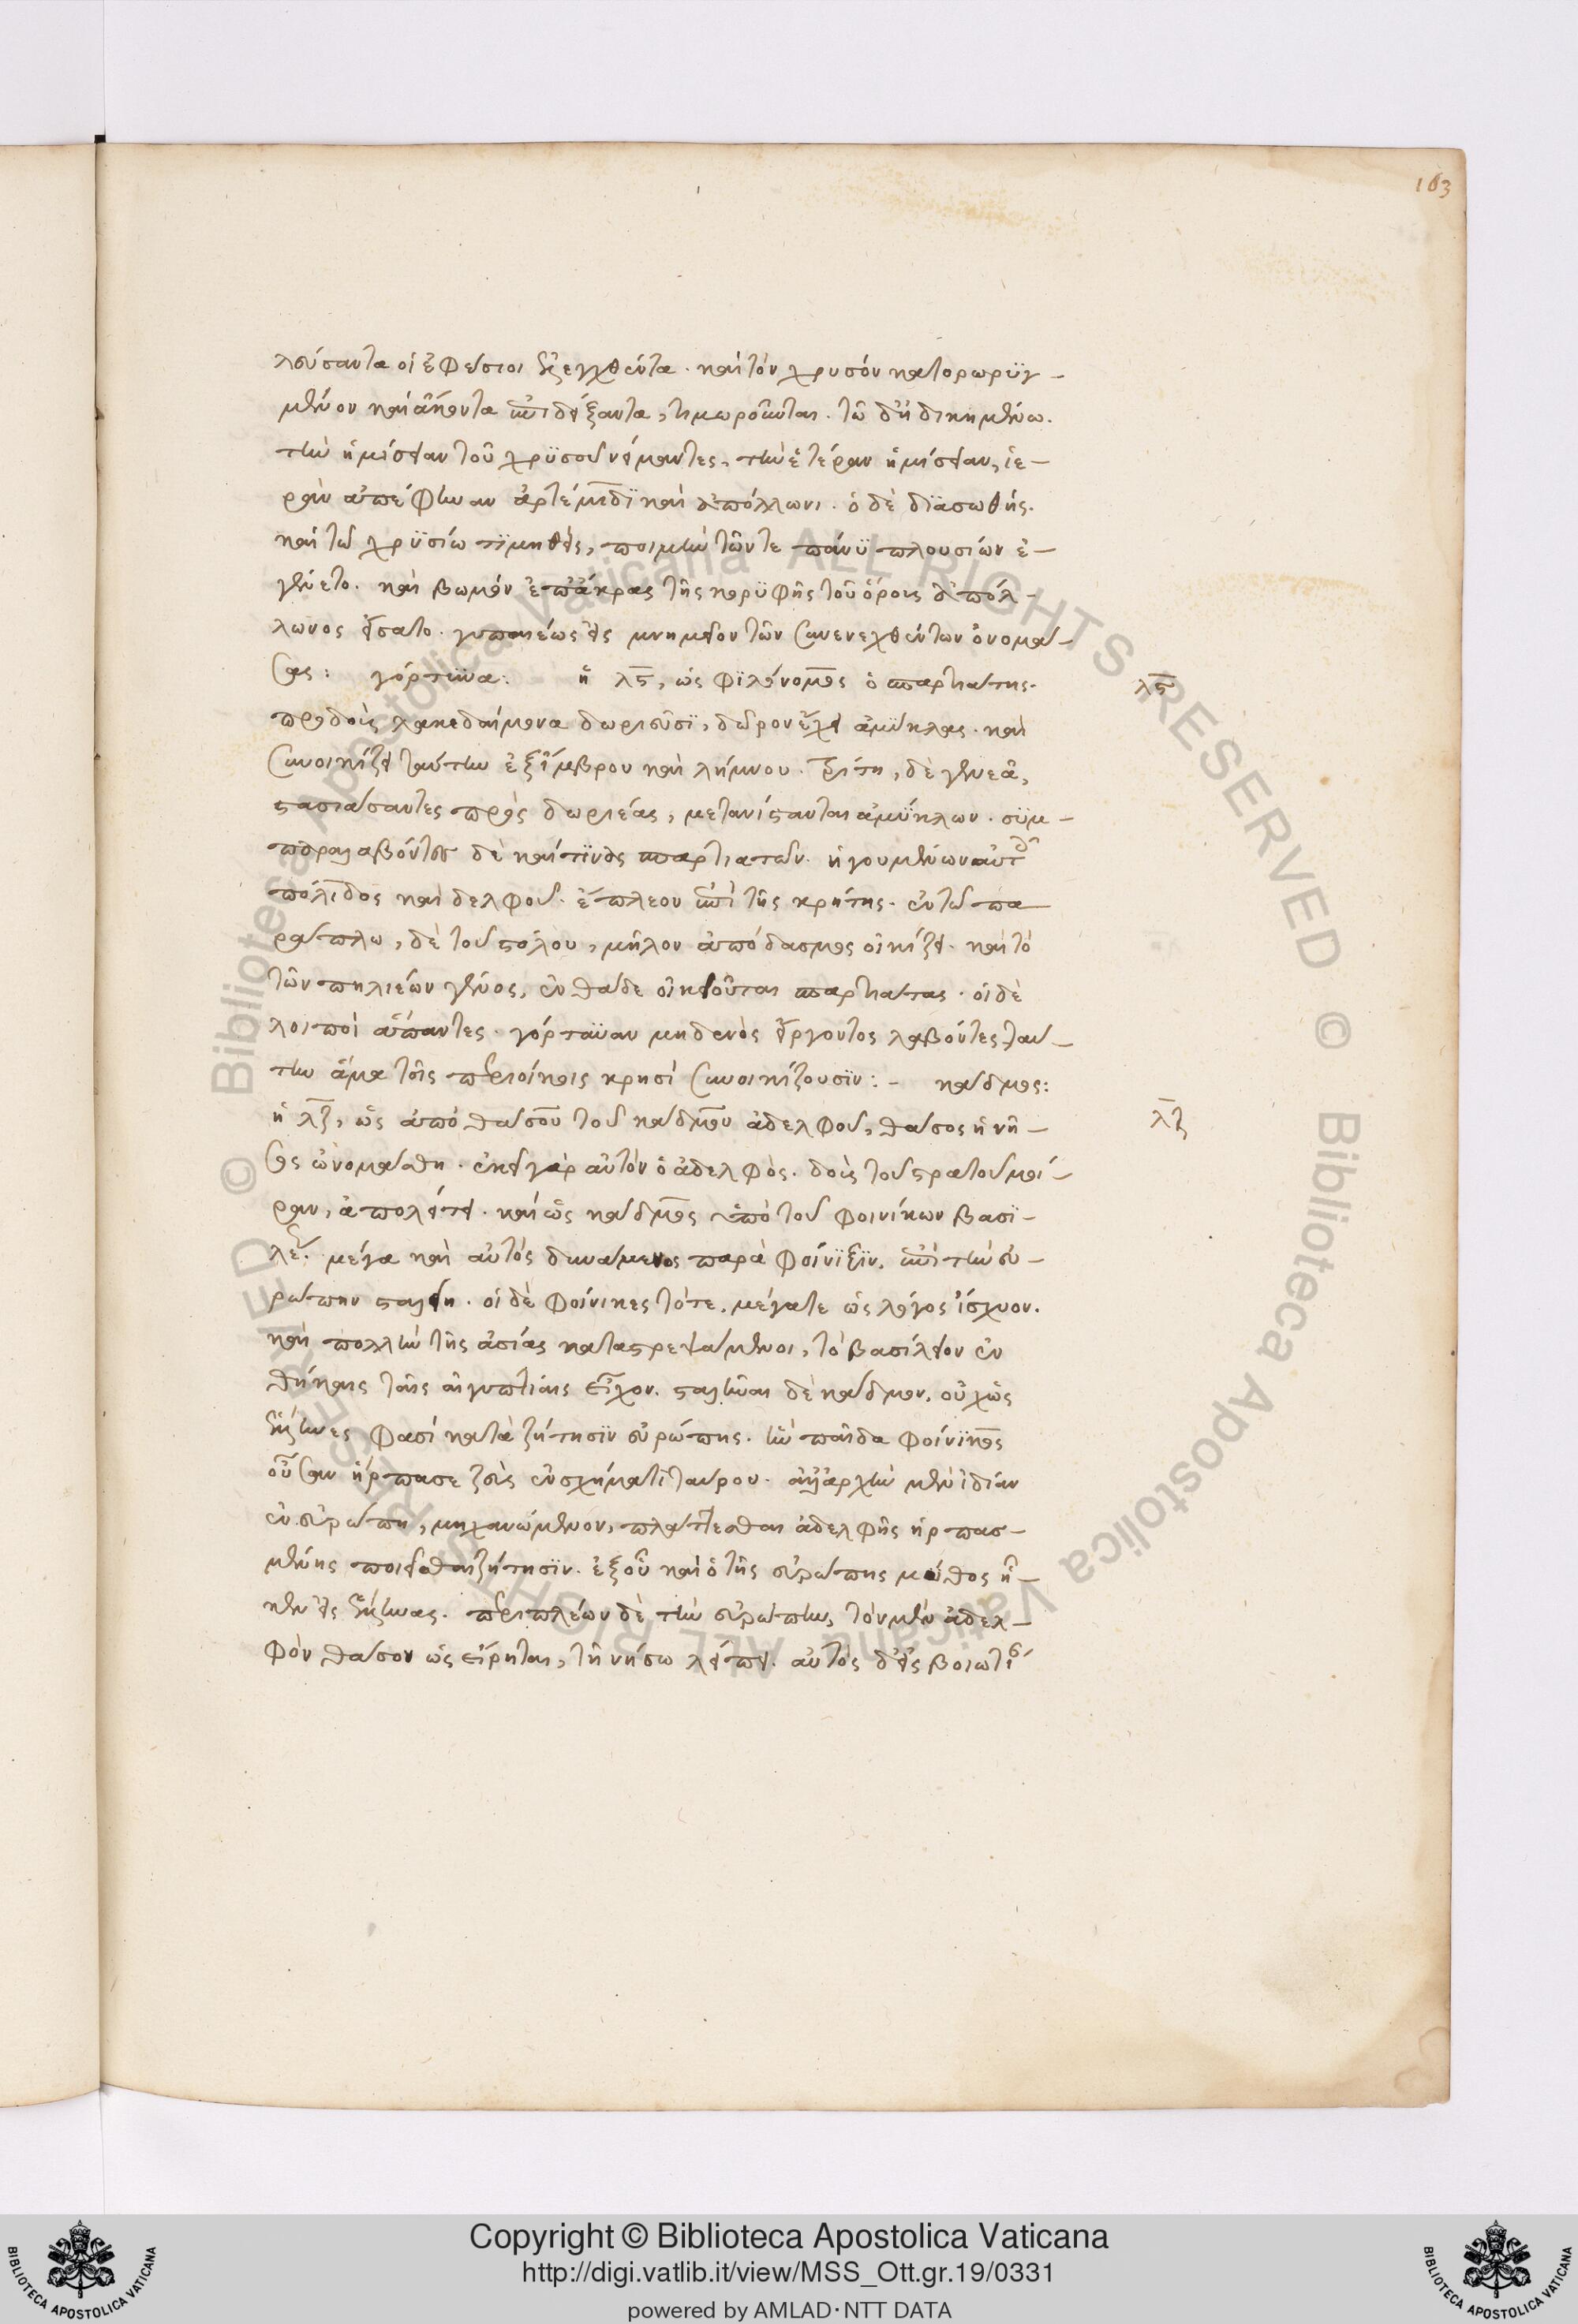 163
λούσαντα οἱ ἐφέσιοι ἐξελεγχθέντα. καὶ τὸν χρυσὸν κατορωρϋγ-
μένον καὶ ἄκοντα ἐπιδείξαντα, τιμωροῦνται. τῶ δ' ἠδικημένω.
τὴν ἡμίσειαν τοῦ χρϋσοῦ νείμαντες, τὴν ἑτέραν ἡμίσειαν, ἱε-
ρὰν ἀπέφηναν ἀρτέμιδϊ καὶ ἀπόλλωνι. ὁ δὲ δϊασωθείς.
καὶ τῶ χρϋσίω τϊμηθείς, ποιμὴν τῶν τε πάνϋ πλουσίων ἐ-
γένετο. καὶ βωμὸν ἐπ' ἄκρας τῆς κορϋφῆς τοῦ ὄρους ἀπόλ-
λωνος εἵσατο. γυπαιέως εἰς μνημεῖον τῶν συνενεχθέντων ὀνομά-
σας: γόρτϋνα: ἡ λϛ, ὡς φϊλόνομος ὁ σπαρτιάτης.
προδοὺς λακεδαίμονα δωριεῦσϊ, δῶρον ἔχει ἀμύκλας. καὶ
συνοικίζει ταύτην ἐξ ἴμβρου καὶ λήμνου. τρίτη, δὲ γενεᾶ,
στασιάσαντες πρὸς δωριέας, μετανίστανται ἀμϋκλων. σϋμ-
παραλαβόντες δὲ καὶ τϊνας σπαρτιατῶν. ἡγουμένων αὐτοῖς
πόλιδος καὶ δελφοῦ. ἔπλεον ἐπὶ τῆς κρήτης. ἐν τῶ πα
ράπλω, δὲ τοῦ στόλου, μῆλον ἀπόδασμος οἰκίζει. καὶ τὸ
τῶν πηλιέων γένος, ἐνθάδε οἰκειοῦται σπαρτιάτας. οἱ δὲ
λοιποὶ ἅπαντες. γόρτϋναν μηδενὸς εἴργοντος λαβόντες ταύ-
την ἅμα τοῖς περιοίκοις κρησὶ συνοικίζουσϊν:- κάδμος:
ἡ λζ, ὡς ἀπὸ θάσου τοῦ κάδμου ἀδελφοῦ, θάσος ἡ νῆ-
σος ὠνομάσθη. ἐκεῖ γὰρ αὐτὸν ὁ ἀδελφὸς. δοὺς τοῦ στρατοῦ μοί-
ραν, ἀπολείπει. καὶ ὡς κάδμος ὑπὸ τοῦ φοινίκων βασϊ-
λέως. μέγα καὶ αὐτὸς δυνάμενος παρὰ φοίνϊξϊν. ἐπὶ τὴν εὐ-
ρώπην σταλείη. οἱ δὲ φοίνικες τότε. μέγα τε ὡς λόγος ἴσχυον.
καὶ πολλὴν τῆς ἀσίας καταστρεψάμενοι, τὸ βασίλειον ἐν
θήβαις ταῖς αἰγυπτίαις εἶχον. σταλῆναι δὲ κάδμον. οὐχ ὡς
ἕλληνες φασὶ κατὰ ζήτησϊν εὐρώπης. ἣν παῖδα φοίνϊκος
οὖσαν ἥρπασε ζεὺς ἐν σχήματι ταύρου. ἀλλ' ἀρχὴν μὲν ἰδίαν
ἐν εὐρώπη, μηχανώμενον, πλάττεσθαι ἀδελφῆς ἡρπασ-
μένης ποιεῖσθαι ζήτησϊν. ἐξ οὗ καὶ ὁ τῆς εὐρώπης μῦθος ἧ-
κεν εἰς ἕλληνας. περιπλέων δὲ τὴν εὐρώπην, τὸν μὲν ἀδελ-
φὸν θάσον ὡς εἴρηται, τῆ νήσω λείπει. αὐτὸς δ' εἰς βοιωτί
λϛ
λζ
Copyright © Biblioteca Apostolica Vaticana
http://digi.vatlib.it/view/MSS_Ott.gr.19/0331
powered by AMLAD·NTT DATA
BIBLIOTECA APOSTOLICA VATICANA
BIBLIOTECA APOSTOLICA VATICANA
© Biblioteca Apostolica Vaticana ALL RIGHTS RESERVED © Biblioteca Apostolica Vaticana ALL RIGHTS RESERVED